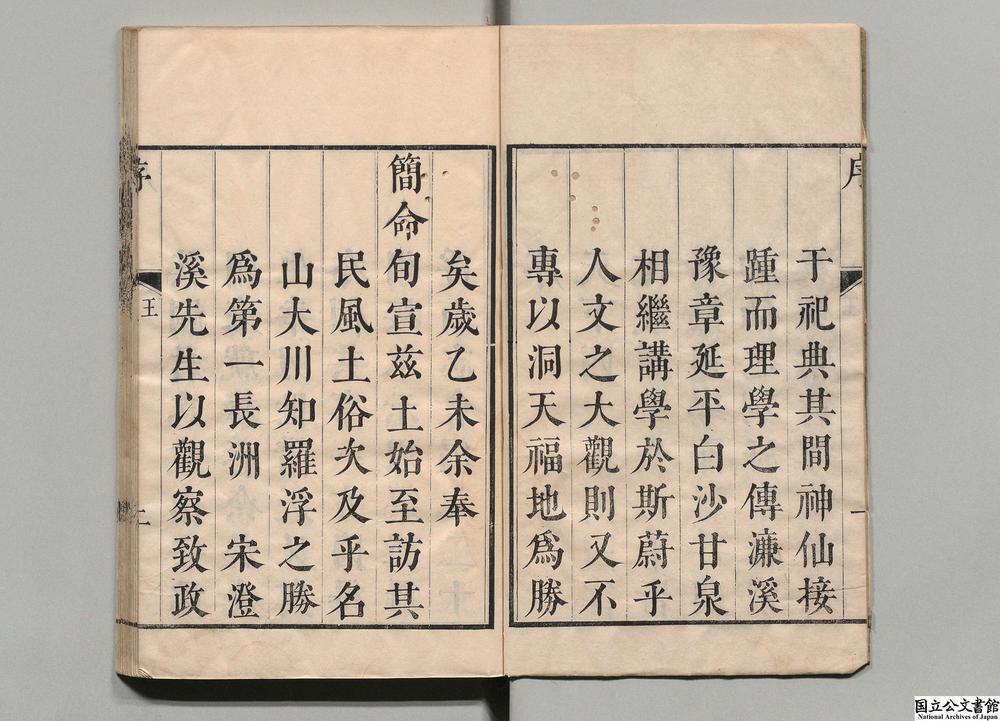 序
于祀典其間神仙接
踵而理學之傳濂溪
豫章延平白沙甘泉
相繼講學於斯蔚乎
人文之大觀則又不
專以洞天福地爲勝
一
矣歲乙未余奉
簡命旬宣兹土始至訪其
民風土俗次及乎名
山大川知羅浮之勝
爲第一長洲 宋澄
溪先生以觀察致政
序
王
二
国立公文書館
National Archives of Japan